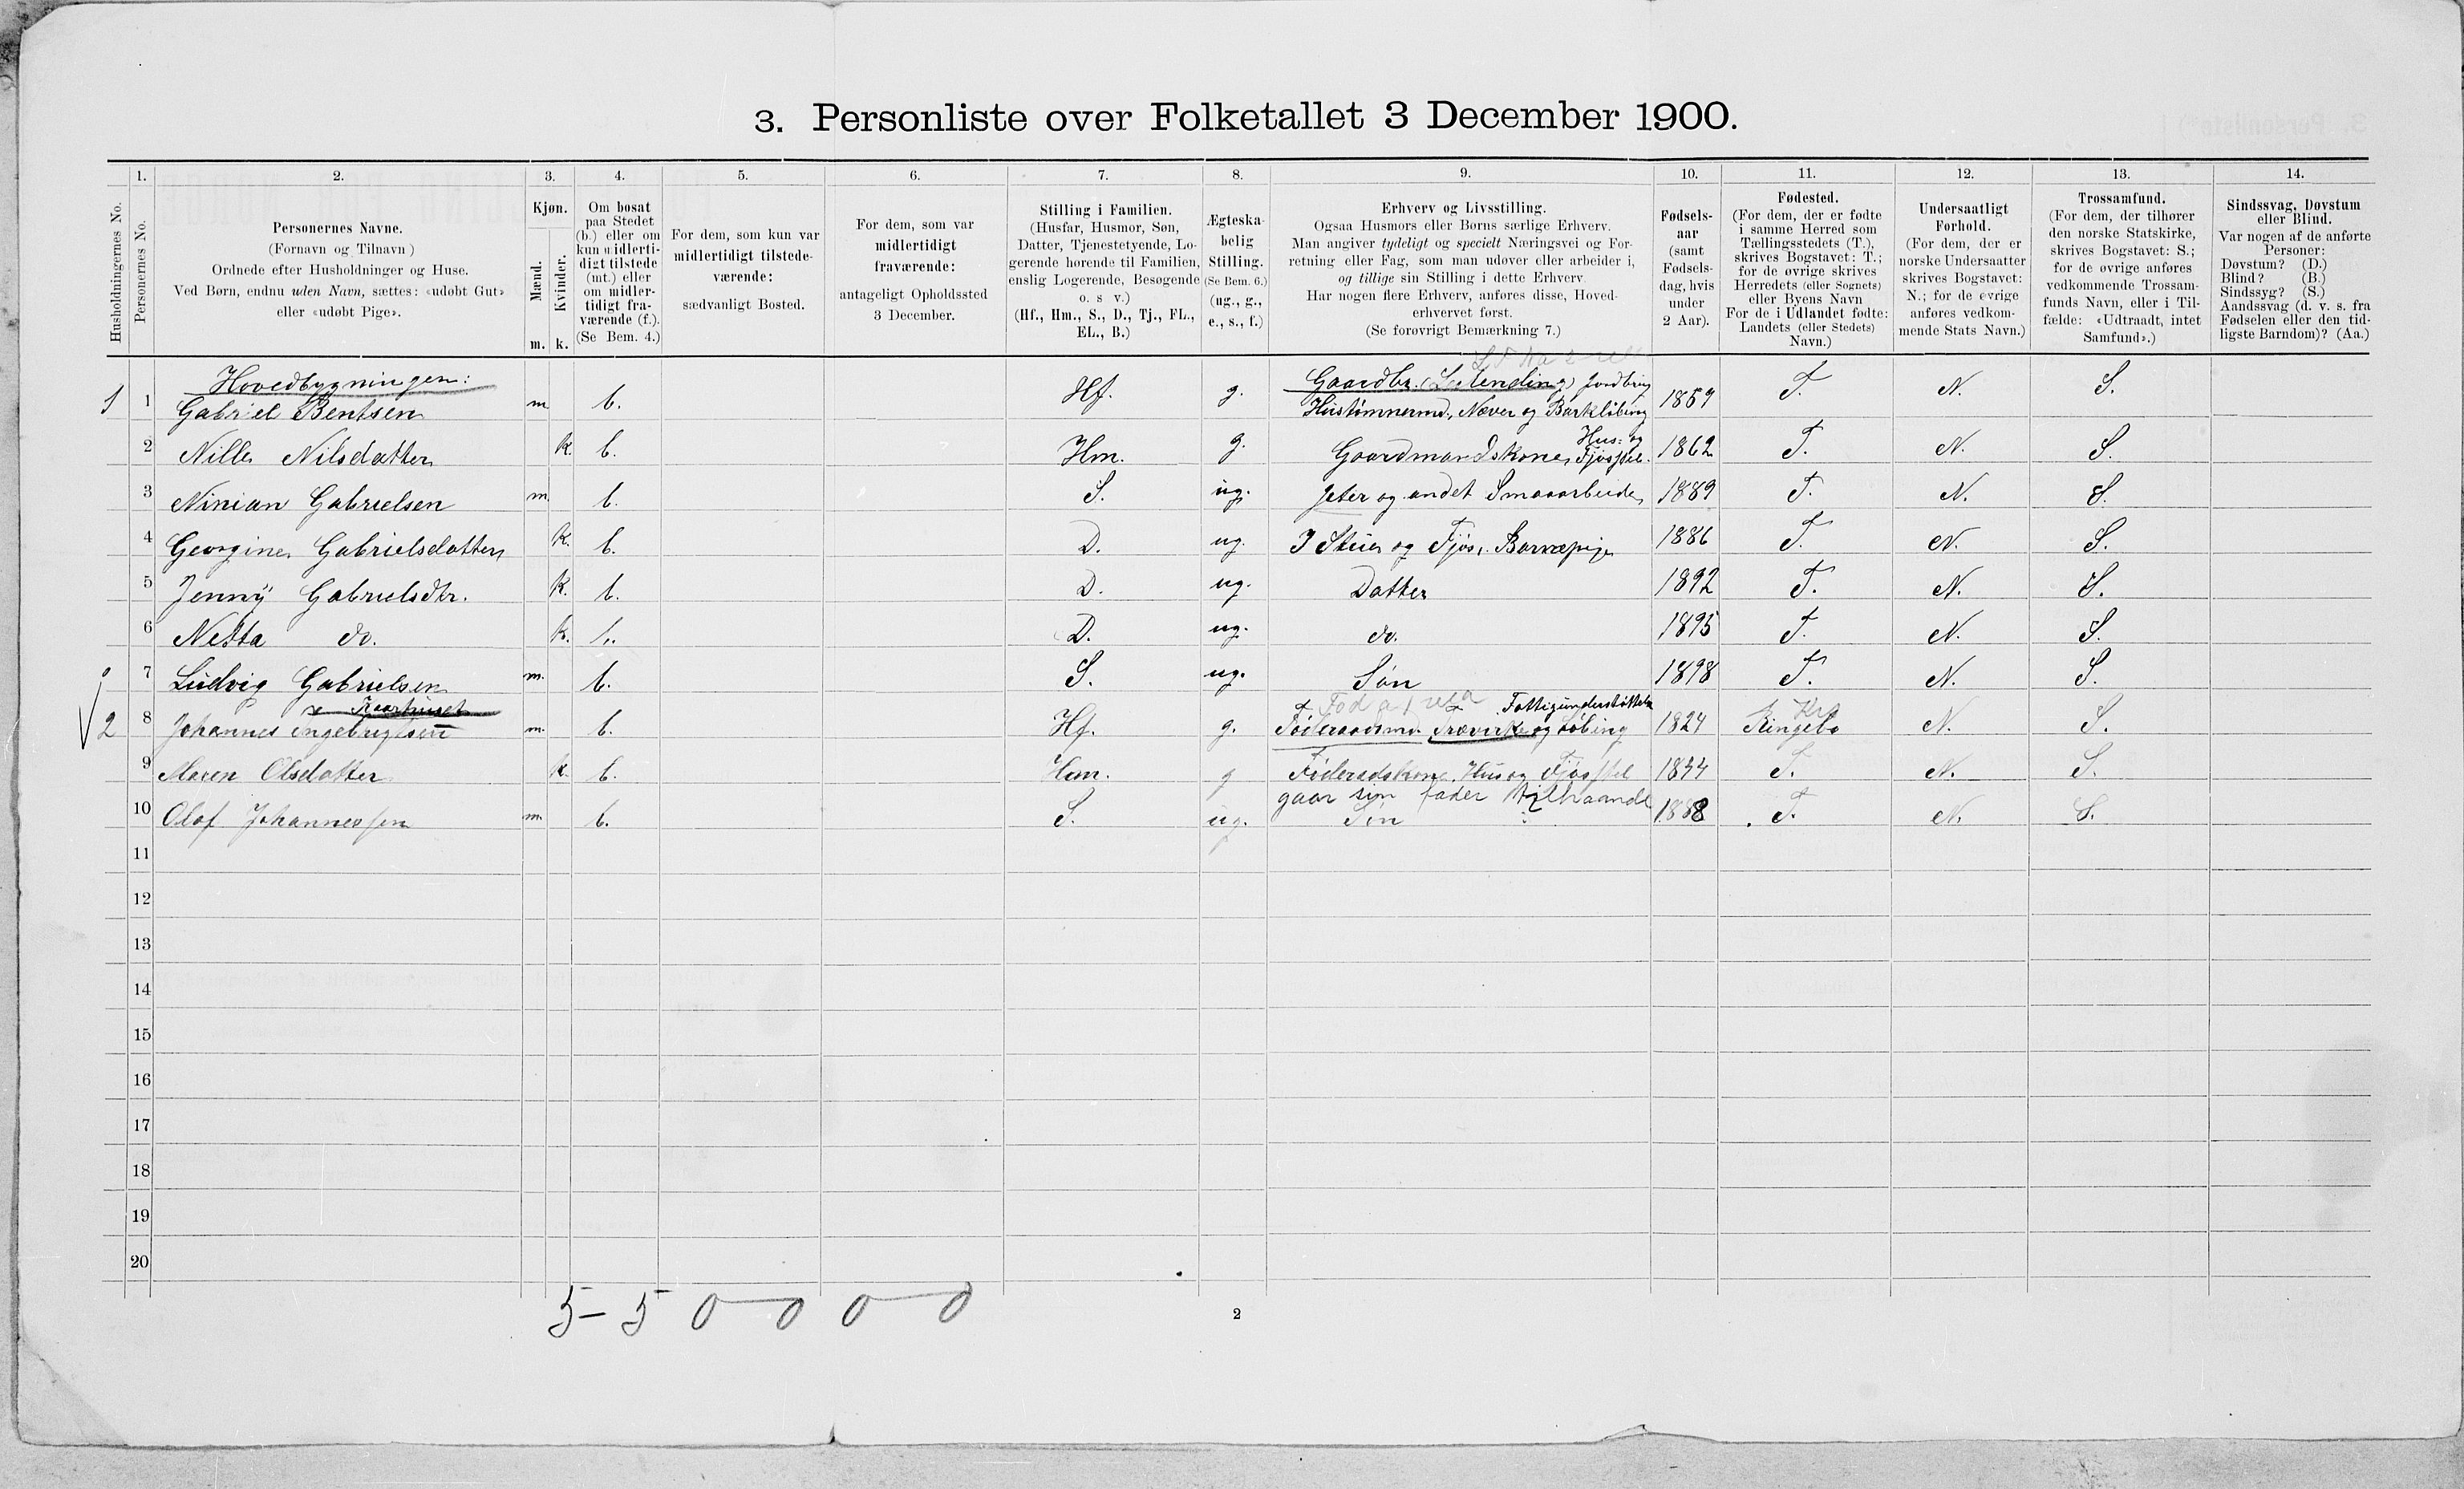 3. Personliste over Folketallet 3 December 1900.
1. 2. 3. 4. 5. 6. 7. 8. 9. 10. 11. 12. 13. 14.
Husholdningernes No.
Personernes No.
Personernes Navne.
(Fornavn og Tilnavn)
Ordnede efter Husholdninger og Huse.
Ved Børn, endnu uden Navn, sættes: «udøbt Gut»
eller «udøbt Pige».
Kjøn.
Mænd.
Kvinder.
m. k.
Om bosat
paa Stedet
(b.) eller om
kun midlerti-
digt tilstede
(mt.) eller
om midler-
tidigt fra-
værende (f.).
(Se Bem. 4.)
For dem, som kun var
midlertidigt tilstede-
værende:
sædvanligt Bosted.
For dem, som var
midlertidigt
fraværende:
antageligt Opholdssted
3 December.
Stilling i Familien.
(Husfar, Husmor, Søn,
Datter, Tjenestetyende, Lo-
gerende hørende til Familien,
enslig Logerende, Besøgende
o. s v.)
(Hf., Hm., S., D., Tj., FL.,
EL., B.)
Ægteska-
belig
Stilling.
(Se Bem. 6.)
(ug., g.,
e., s., f.)
Erhverv og Livsstilling.
Ogsaa Husmors eller Børns særlige Erhverv.
Man angiver tydeligt og specielt Næringsvei og For-
retning eller Fag, som man udøver eller arbeider i,
og tillige sin Stilling i dette Erhverv.
Har nogen flere Erhverv, anføres disse, Hoved-
erhvervet først.
(Se forøvrigt Bemærkning 7.)
Fødsels-
aar
(samt
Fødsels-
dag, hvis
under
2 Aar).
Fødested.
(For dem, der er fødte
i samme Herred som
Tællingsstedets (T.),
skrives Bogstavet: T.;
for de øvrige skrives
Herredets (eller Sognets)
eller Byens Navn
For de i Udlandet fødte:
Landets (eller Stedets)
Navn.)
Undersaatligt
Forhold.
(For dem, der er
norske Undersaatter
skrives Bogstavet:
N.; for de øvrige
anføres vedkom-
mende Stats Navn.)
Trossamfund.
(For dem, der tilhører
den norske Statskirke,
skrives Bogstavet: S.;
for de øvrige anføres
vedkommende Trossam-
funds Navn, eller i Til-
fælde: «Udtraadt, intet
Samfund».)
Sindssvag, Døvstum
eller Blind.
Var nogen af de anførte
Personer:
Døvstum? (D.)
Blind? (B.)
Sindssyg? (S.)
Aandssvag (d. v. s. fra
Fødselen eller den tid-
ligste Barndom)? (Aa.)
Hovedbygningen:
Gaardbr. (Leilending) Jordbrug
1 1 Gabriel Bentsen m b. Hf. g. Hustømmermd., Næver og Barkløbing 1859 T. N. S.
Hus- og
2 Nille Nilsdatter k. b. Hm. g. Gaardmandskone, Fjøsstel. 1862 T. N. S.
3 Ninian Gabrielsen m. b. S. ug. Jeter og andet Smaaarbeide 1889 T. N. S.
4 Georgine Gabrielsdatter k. b. D. ug. I Steller og Fjøs, Barnepige 1886 T. N. S.
5 Jenny Gabrielsdtr. k. b. D. ug. Datter 1892 T. N. S.
6 Netta do. k. b. D. ug. do. 1895 T. N. S.
7 Ludvig Gabrielsen m. b. S. ug. Søn 1898 T. N. S.
Kaarhuset
Fattigunderstøttelse
2 8 Johannes Ingebrigtsen m. b. Hf. g. Føderaadsmd. Trævirke og Løbing 1824 Ringebo Kra N. S.
9 Maren Olsdatter k. b. Hm. g Føderadskone, Hus og Fjøsstel 1844 T. N. S.
gaar sin fader tilhaande
10 Olaf Johannessen m. b. S. ug. Søn 1888 T. N. S.
11
12
13
14
15
16
17
18
19
20
5 - 5 0 - 0 0 - 0
2